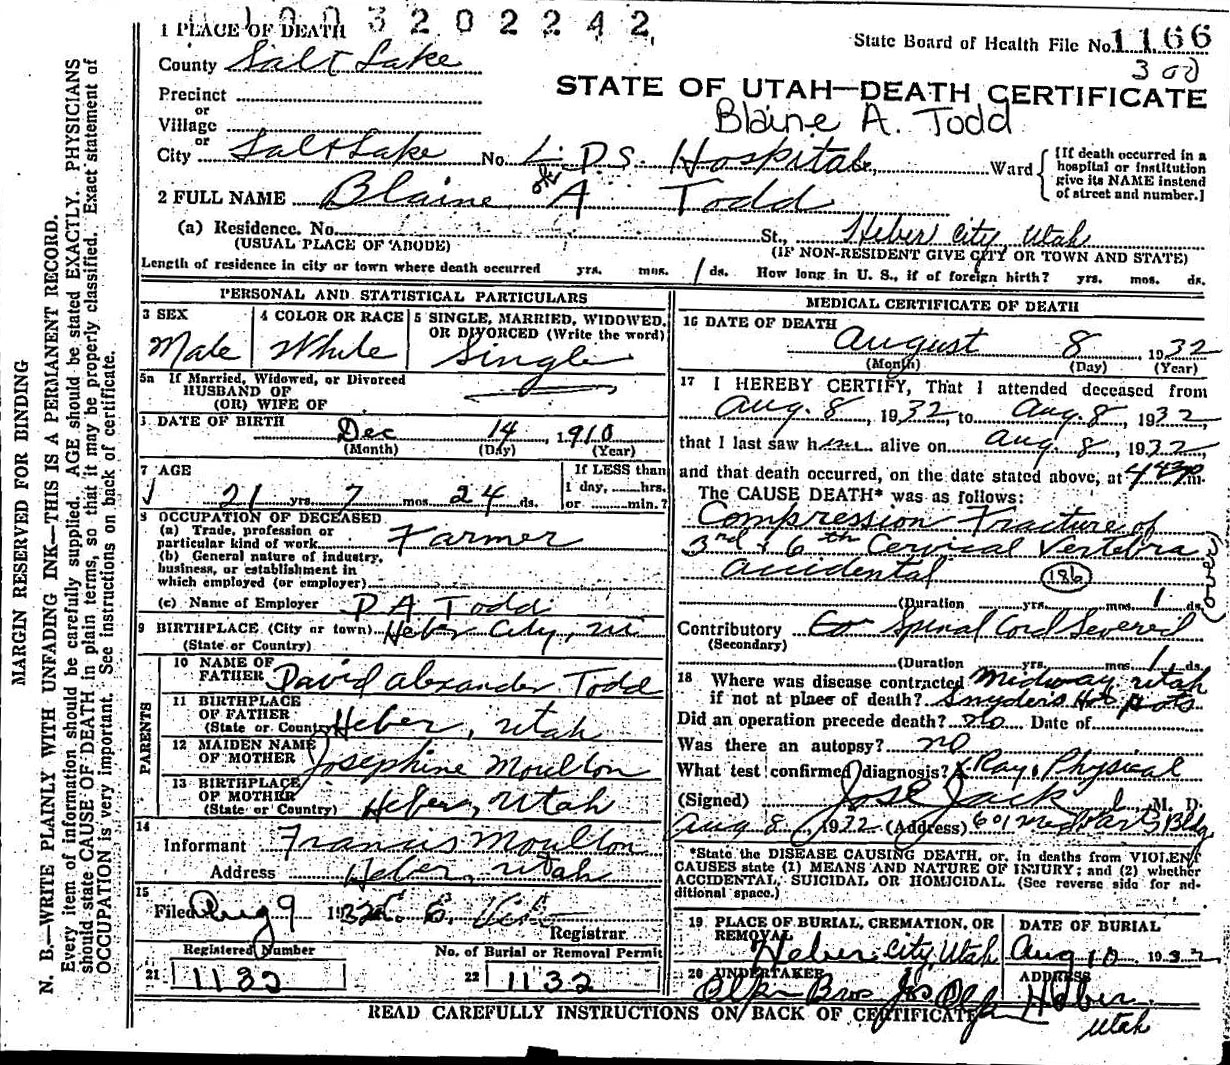 3202242
1 PLACE OF DEATH
State Board of Health File No. 1166
300
County Salt Lake
STATE OF UTAH—DEATH CERTIFICATE
Precinct
or
Village
or
Blaine A. Todd
City Salt Lake No. L. D. S. Hospital, Ward
[If death occurred in a hospital or institution give its NAME instead of street and number.]
2 FULL NAME Blaine A Todd
(a) Residence. No. St., Heber City, Utah
(USUAL PLACE OF ABODE) (IF NON-RESIDENT GIVE CITY OR TOWN AND STATE)
Length of residence in city or town where death occurred yrs. mos. 1 ds. How long in U. S., if of foreign birth? yrs. mos. ds.
PERSONAL AND STATISTICAL PARTICULARS
3 SEX Male
4 COLOR OR RACE White
5 SINGLE, MARRIED, WIDOWED, OR DIVORCED (Write the word) Single
5a If Married, Widowed, or Divorced
HUSBAND OF
(OR) WIFE OF
DATE OF BIRTH Dec 14, 1910
(Month) (Day) (Year)
7 AGE
21 yrs. 7 mos. 24 ds.
If LESS than
1 day, hrs.
or min.?
8 OCCUPATION OF DECEASED
(a) Trade, profession or
particular kind of work Farmer
(b) General nature of industry,
business, or establishment in
which employed (or employer)
(c) Name of Employer D A Todd
9 BIRTHPLACE (City or town) Heber City, Ut
(State or Country)
PARENTS
10 NAME OF
FATHER David Alexander Todd
11 BIRTHPLACE
OF FATHER
(State or Country) Heber, Utah
12 MAIDEN NAME
OF MOTHER Josephine Moulton
13 BIRTHPLACE
OF MOTHER
(State or Country) Heber, Utah
14
Informant Francis Moulton
Address Heber, Utah
15
Filed Aug 9 1932
Registrar
Registered Number
21 1132
No. of Burial or Removal Permit
22 1132
MEDICAL CERTIFICATE OF DEATH
16 DATE OF DEATH
August 8, 1932
(Month) (Day) (Year)
17 I HEREBY CERTIFY, That I attended deceased from
Aug. 8, 1932, to Aug. 8, 1932
that I last saw him alive on Aug. 8, 1932,
and that death occurred, on the date stated above, at m.
The CAUSE DEATH* was as follows:
Compression Fracture of
3rd & 6th Cervical Vertebra
accidental (186)
(over)
(Duration yrs. mos. 1 ds.
Contributory Spinal Cord Severed
(Secondary)
(Duration yrs. mos. 1 ds.
18 Where was disease contracted Midway, Utah
if not at place of death? Snyder's Hot Pots
Did an operation precede death? no Date of
Was there an autopsy? no
What test confirmed diagnosis? X Ray, Physical
(Signed) Jos. E. Jack, M. D.
Aug 8, 1932 (Address) 601 Med Arts Bldg
*State the DISEASE CAUSING DEATH, or, in deaths from VIOLENT
CAUSES state (1) MEANS AND NATURE OF INJURY; and (2) whether
ACCIDENTAL, SUICIDAL OR HOMICIDAL. (See reverse side for ad-
ditional space.)
19 PLACE OF BURIAL, CREMATION, OR
REMOVAL
Heber City, Utah
DATE OF BURIAL
Aug 10, 1932
20 UNDERTAKER
Olpin Bros Jos Olpin
ADDRESS
Heber
Utah
READ CAREFULLY INSTRUCTIONS ON BACK OF CERTIFICATE
MARGIN RESERVED FOR BINDING
N. B.—WRITE PLAINLY WITH UNFADING INK—THIS IS A PERMANENT RECORD.
Every item of information should be carefully supplied. AGE should be stated EXACTLY. PHYSICIANS
should state CAUSE OF DEATH in plain terms, so that it may be properly classified. Exact statement of
OCCUPATION is very important. See instructions on back of certificate.